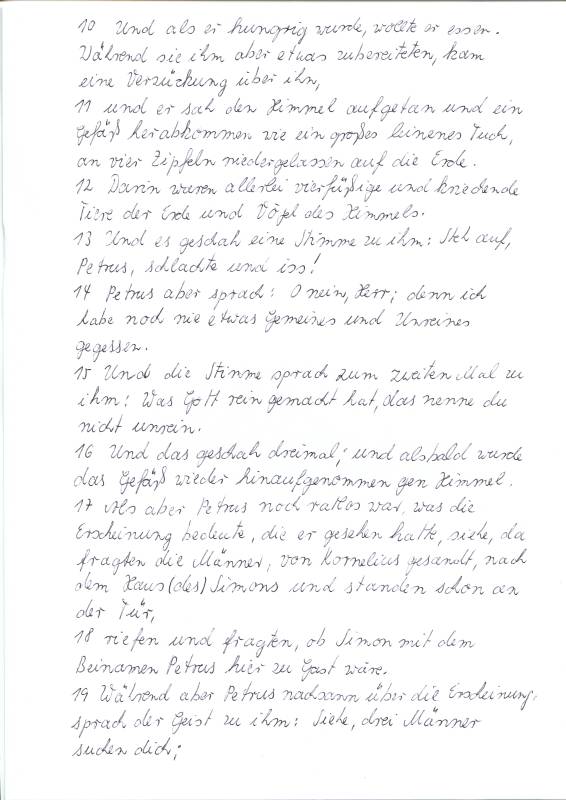 10 Und als er hungrig wurde, wollte er essen.
Während sie ihm aber etwas zubereiteten, kam
eine Verzückung über ihn,
11 und er sah den Himmel aufgetan und ein
Gefäß herabkommen wie ein großes leinenes Tuch,
an vier Zipfeln niedergelassen auf die Erde.
12 Darin waren allerlei vierfüßige und kriechende
Tiere der Erde und Vögel des Himmels.
13 Und es geschah eine Stimme zu ihm: Steh auf,
Petrus, schlachte und iss!
14 Petrus aber sprach: O nein, Herr; denn ich
habe noch nie etwas Gemeines und Unreines
gegessen.
15 Und die Stimme sprach zum zweiten Mal zu
ihm: Was Gott rein gemacht hat, das nenne du
nicht unrein.
16 Und das geschah dreimal; und alsbald wurde
das Gefäß wieder hinaufgenommen gen Himmel.
17 Als aber Petrus noch ratlos war, was die
Erscheinung bedeute, die er gesehen hatte, siehe, da
fragten die Männer, von Kornelius gesandt, nach
dem Haus (des) Simons und standen schon an
der Tür,
18 riefen und fragten, ob Simon mit dem
Beinamen Petrus hier zu Gast wäre.
19 Während aber Petrus nachsann über die Erscheinung,
sprach der Geist zu ihm: Siehe, drei Männer
suchen dich;